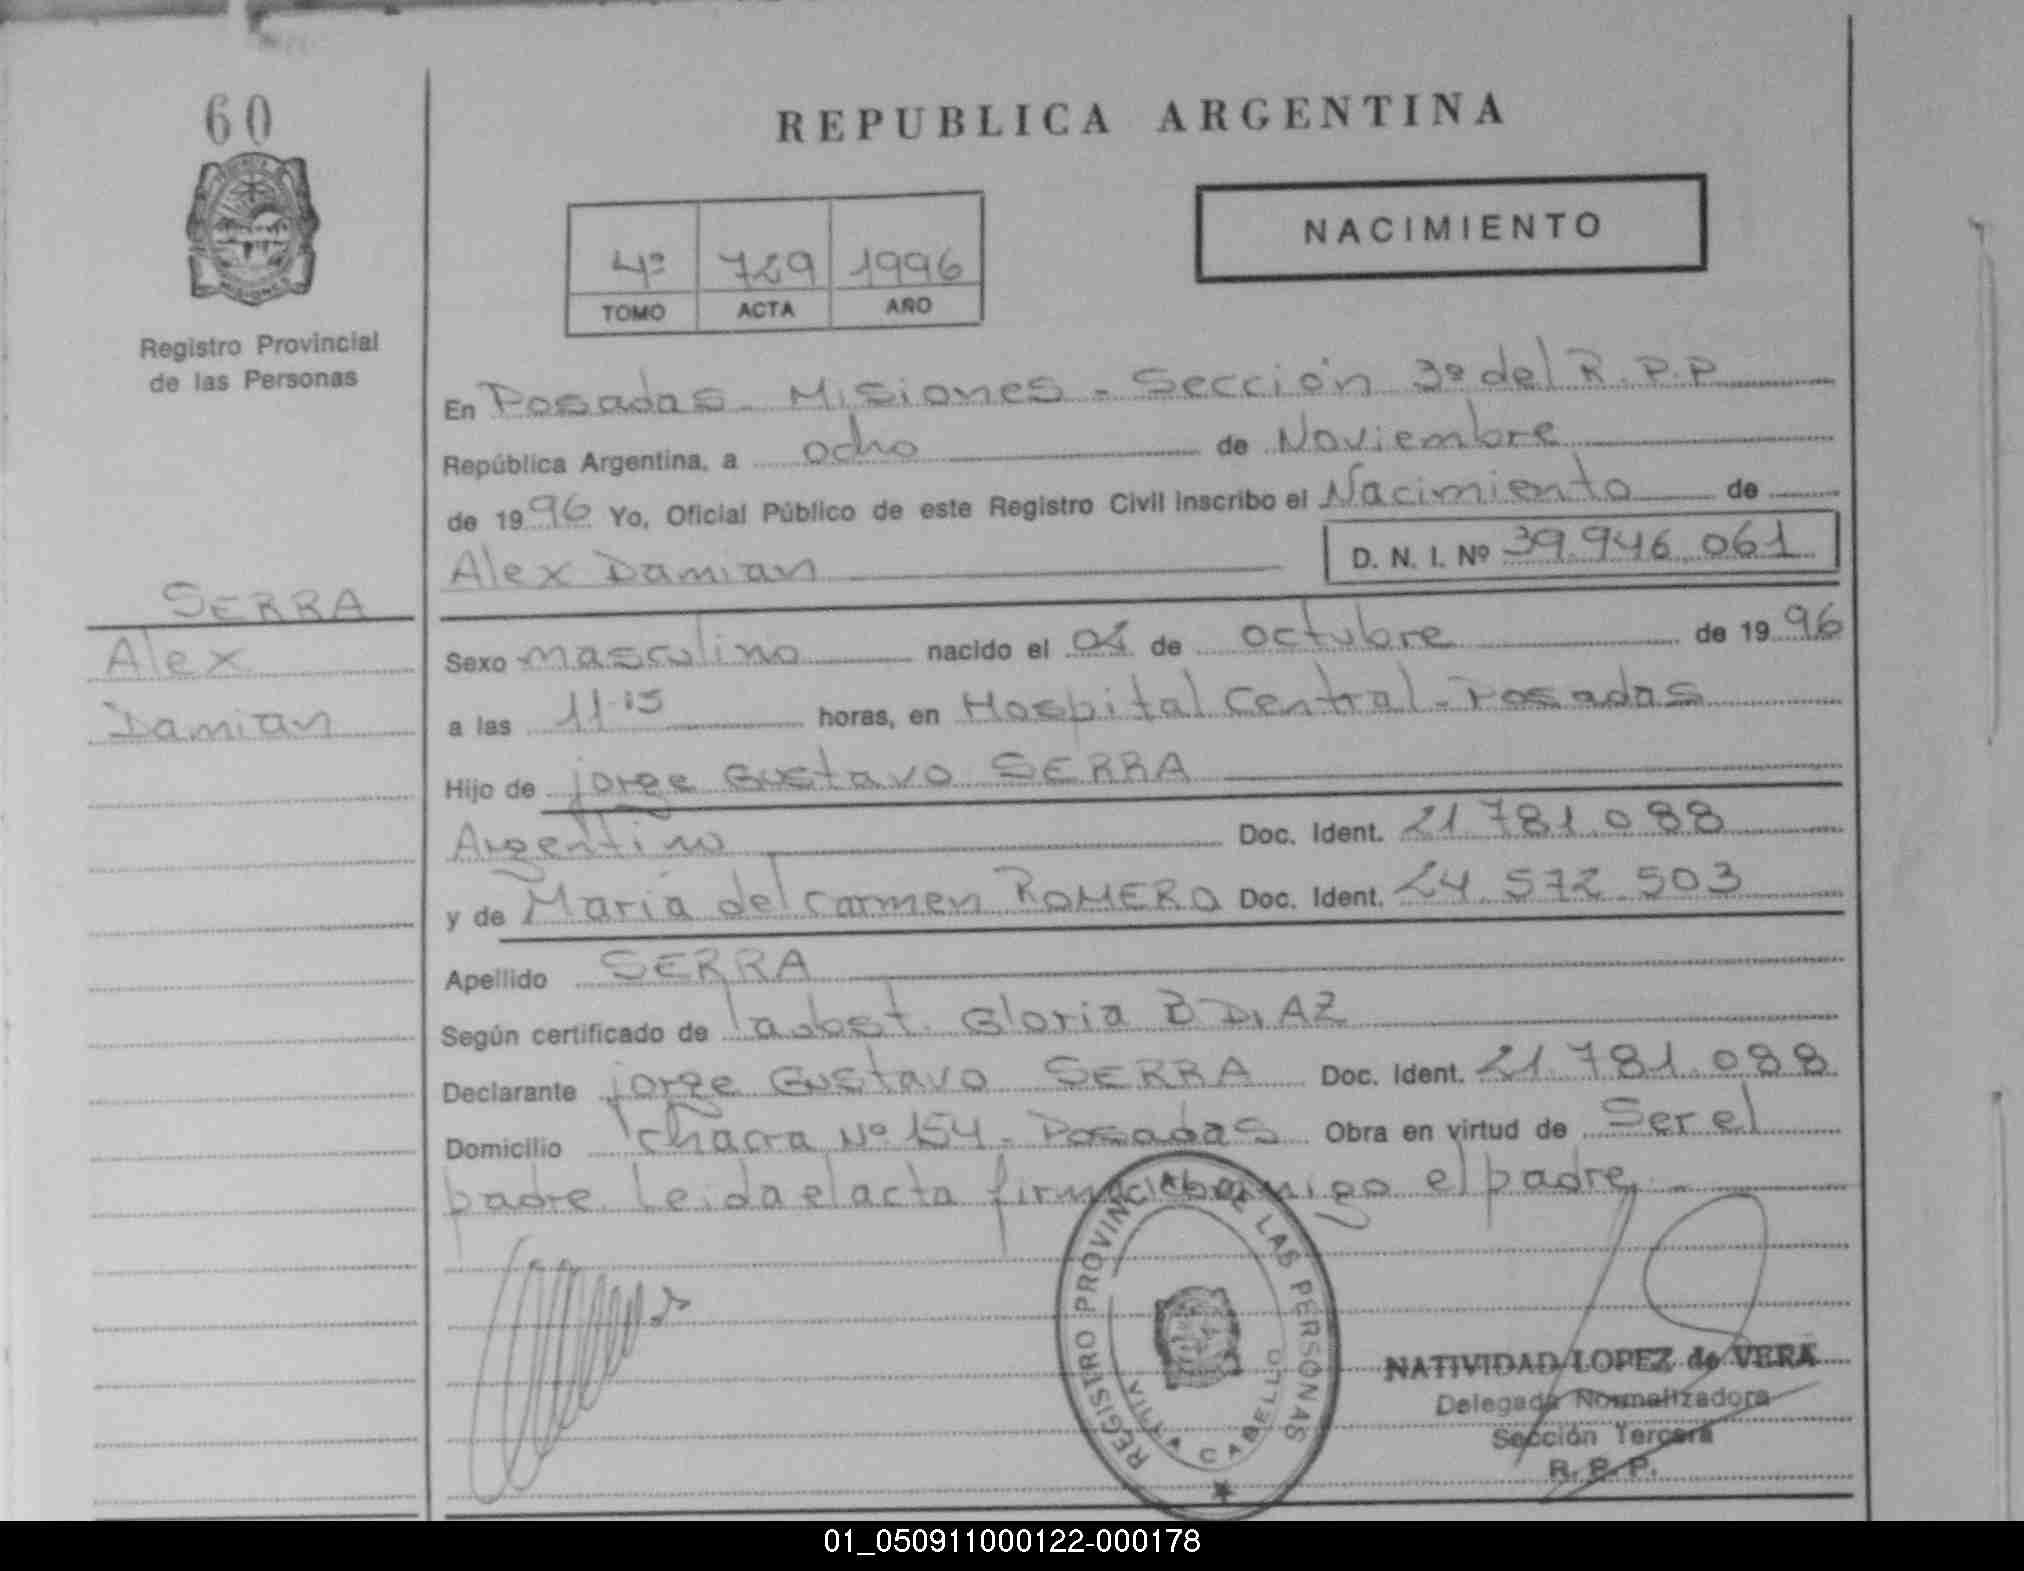 60
REPUBLICA ARGENTINA
NACIMIENTO
4º 729 1996
TOMO ACTA AÑO
Registro Provincial
de las Personas
En Posadas - Misiones - Sección 3º del R.P.P
República Argentina, a ocho de Noviembre
de 1996 Yo, Oficial Público de este Registro Civil inscribo el Nacimiento de
Alex Damian D. N. I. Nº 39.946.061
SERRA
Alex
Damian
Sexo masculino nacido el 04 de octubre de 1996
a las 11.15 horas, en Hospital Central - Posadas
Hijo de jorge Gustavo SERRA
Argentino Doc. Ident. 21.781.088
y de María del Carmen ROMERO Doc. Ident. 24.572.503
Apellido SERRA
Según certificado de la obst. Gloria B DIAZ
Declarante jorge Gustavo SERRA Doc. Ident. 21.781.088
Domicilio chacra Nº 154 - Posadas Obra en virtud de Ser el
padre. Leida el acta firma conmigo el padre
REGISTRO PROVINCIAL DE LAS PERSONAS
VILLA CABELLO
NATIVIDAD LOPEZ de VERA
Delegada Normalizadora
Sección Tercera
R. P. P.
01_050911000122-000178